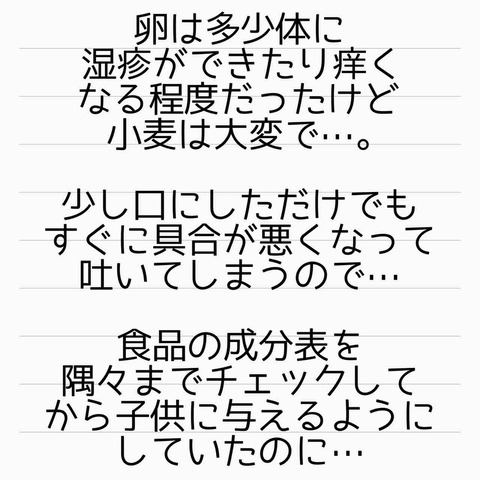 卵は多少体に
湿疹ができたり痒く
なる程度だったけど
小麦は大変で…。
少し口にしただけでも
すぐに具合が悪くなって
吐いてしまうので…
食品の成分表を
隅々までチェックして
から子供に与えるように
していたのに…